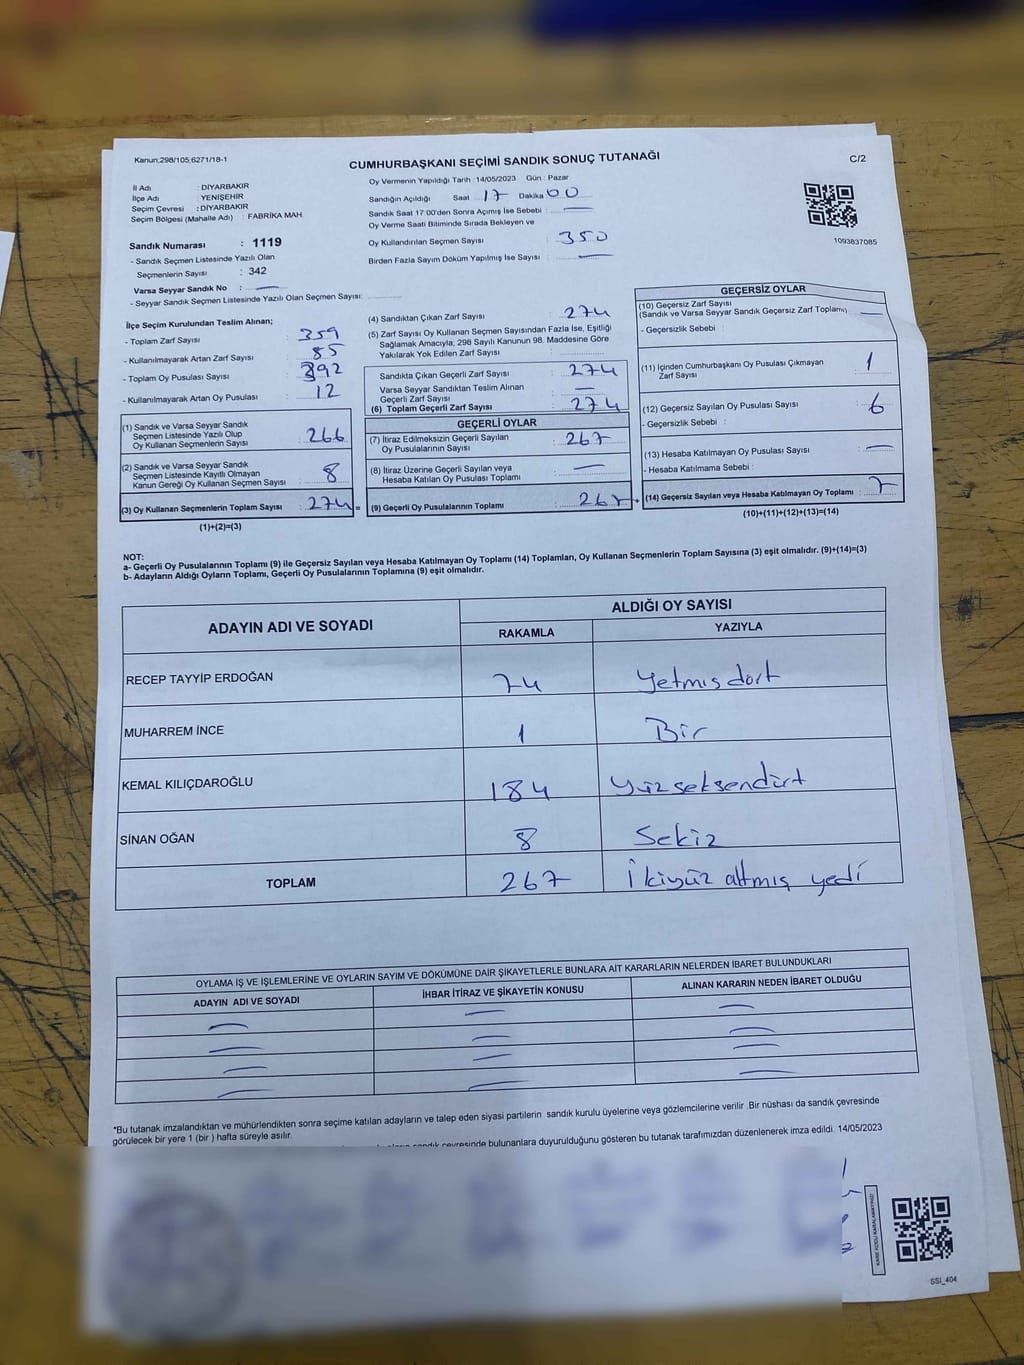 Kanun;298/105;6271/18-1
CUMHURBAŞKANI SEÇİMİ SANDIK SONUÇ TUTANAĞI
C/2
İl Adı : DİYARBAKIR
İlçe Adı : YENİŞEHİR
Seçim Çevresi : DİYARBAKIR
Seçim Bölgesi (Mahalle Adı) : FABRİKA MAH.
Oy Vermenin Yapıldığı Tarih : 14/05/2023 Gün : Pazar
Sandığın Açıldığı Saat 17 Dakika 00
Sandık Saat 17:00'den Sonra Açımış İse Sebebi :
Oy Verme Saati Bitiminde Sırada Bekleyen ve
Oy Kullandırılan Seçmen Sayısı : 350
Birden Fazla Sayım Döküm Yapılmış İse Sayısı :
1093837085
Sandık Numarası : 1119
- Sandık Seçmen Listesinde Yazılı Olan
Seçmenlerin Sayısı : 342
Varsa Seyyar Sandık No :
- Seyyar Sandık Seçmen Listesinde Yazılı Olan Seçmen Sayısı:
İlçe Seçim Kurulundan Teslim Alınan;
- Toplam Zarf Sayısı : 359
- Kullanılmayarak Artan Zarf Sayısı : 85
- Toplam Oy Pusulası Sayısı : 392
- Kullanılmayarak Artan Oy Pusulası : 12
(1) Sandık ve Varsa Seyyar Sandık
Seçmen Listesinde Yazılı Olup
Oy Kullanan Seçmenlerin Sayısı : 266
(2) Sandık ve Varsa Seyyar Sandık
Seçmen Listesinde Kayıtlı Olmayan
Kanun Gereği Oy Kullanan Seçmen Sayısı : 8
(3) Oy Kullanan Seçmenlerin Toplam Sayısı : 274 =
(1)+(2)=(3)
(4) Sandıktan Çıkan Zarf Sayısı : 274
(5) Zarf Sayısı Oy Kullanan Seçmen Sayısından Fazla İse, Eşitliği
Sağlamak Amacıyla, 298 Sayılı Kanunun 98. Maddesine Göre
Yakılarak Yok Edilen Zarf Sayısı :
Sandıkta Çıkan Geçerli Zarf Sayısı : 274
Varsa Seyyar Sandıktan Teslim Alınan
Geçerli Zarf Sayısı :
(6) Toplam Geçerli Zarf Sayısı : 274
GEÇERLİ OYLAR
(7) İtiraz Edilmeksizin Geçerli Sayılan
Oy Pusulalarının Sayısı : 267
(8) İtiraz Üzerine Geçerli Sayılan veya
Hesaba Katılan Oy Pusulası Toplamı :
(9) Geçerli Oy Pusulalarının Toplamı : 267 +
GEÇERSİZ OYLAR
(10) Geçersiz Zarf Sayısı
(Sandık ve Varsa Seyyar Sandık Geçersiz Zarf Toplamı) :
- Geçersizlik Sebebi :
(11) İçinden Cumhurbaşkanı Oy Pusulası Çıkmayan
Zarf Sayısı : 1
(12) Geçersiz Sayılan Oy Pusulası Sayısı : 6
- Geçersizlik Sebebi :
(13) Hesaba Katılmayan Oy Pusulası Sayısı :
- Hesaba Katılmama Sebebi :
(14) Geçersiz Sayılan veya Hesaba Katılmayan Oy Toplamı : 7
(10)+(11)+(12)+(13)=(14)
NOT:
a- Geçerli Oy Pusulalarının Toplamı (9) ile Geçersiz Sayılan veya Hesaba Katılmayan Oy Toplamı (14) Toplamları, Oy Kullanan Seçmenlerin Toplam Sayısına (3) eşit olmalıdır. (9)+(14)=(3)
b- Adayların Aldığı Oyların Toplamı, Geçerli Oy Pusulalarının Toplamına (9) eşit olmalıdır.
ADAYIN ADI VE SOYADI
ALDIĞI OY SAYISI
RAKAMLA YAZIYLA
RECEP TAYYİP ERDOĞAN 74 Yetmiş dört
MUHARREM İNCE 1 Bir
KEMAL KILIÇDAROĞLU 184 Yüzseksendört
SİNAN OĞAN 8 Sekiz
TOPLAM 267 İkiyüz altmış yedi
OYLAMA İŞ VE İŞLEMLERİNE VE OYLARIN SAYIM VE DÖKÜMÜNE DAİR ŞİKAYETLERLE BUNLARA AİT KARARLARIN NELERDEN İBARET BULUNDUKLARI
ADAYIN ADI VE SOYADI İHBAR İTİRAZ VE ŞİKAYETİN KONUSU ALINAN KARARIN NEDEN İBARET OLDUĞU
*Bu tutanak imzalandıktan ve mühürlendikten sonra seçime katılan adayların ve talep eden siyasi partilerin sandık kurulu üyelerine veya gözlemcilerine verilir. Bir nüshası da sandık çevresinde
görülecek bir yere 1 (bir ) hafta süreyle asılır.
sandık çevresinde bulunanlara duyurulduğunu gösteren bu tutanak tarafımızdan düzenlenerek imza edildi. 14/05/2023
KARE KODU KARALAMAYINIZ!
SSI_404